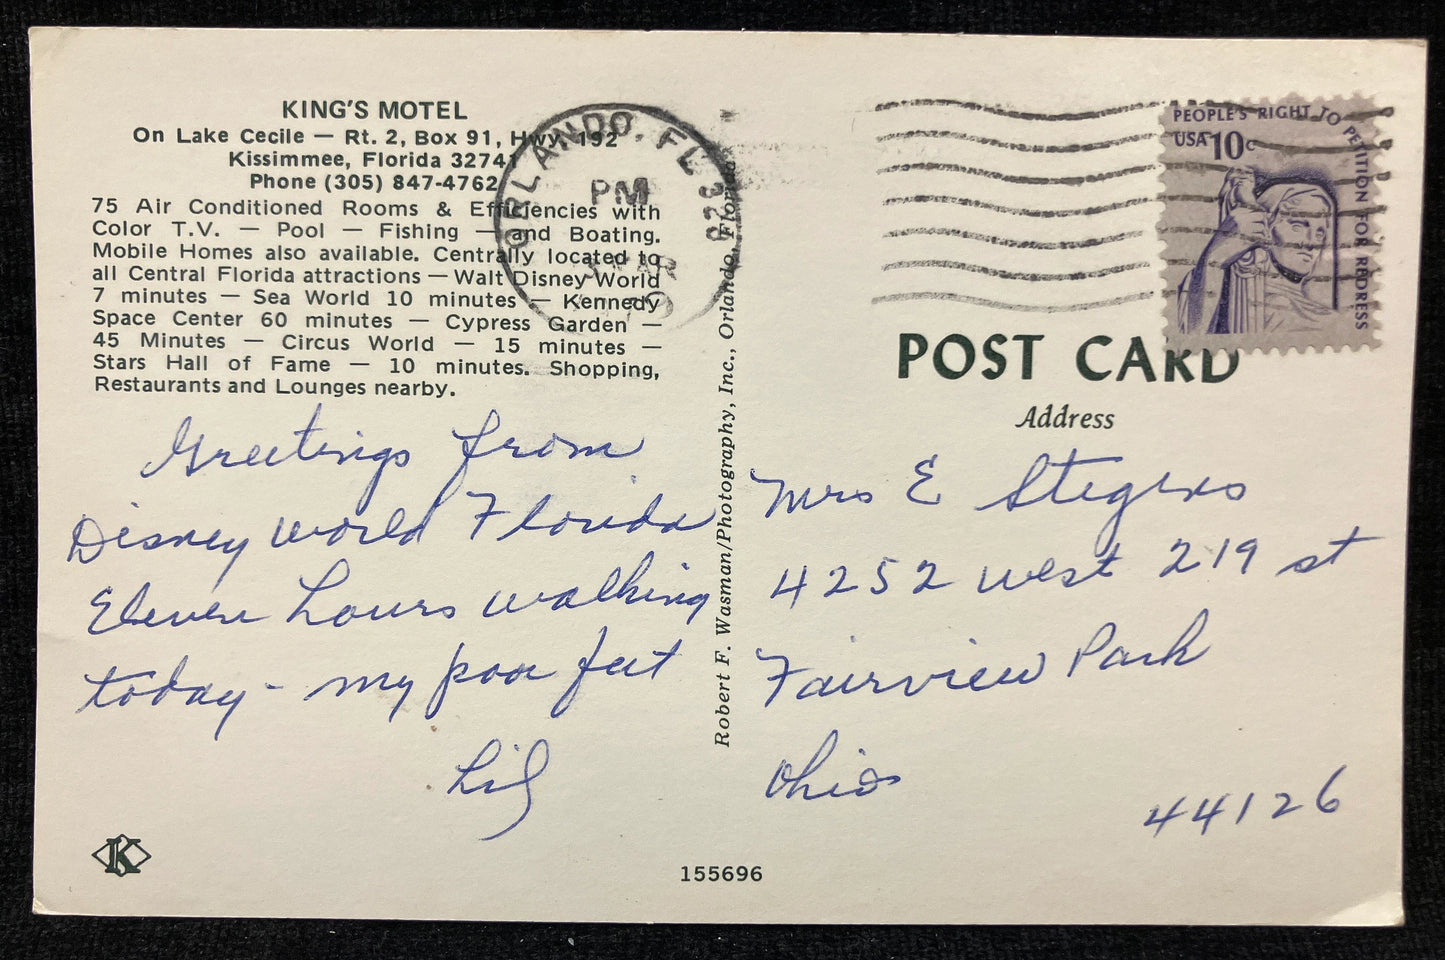 KING'S MOTEL
On Lake Cecile — Rt. 2, Box 91, Hwy. 192
Kissimmee, Florida 32741
Phone (305) 847-4762
75 Air Conditioned Rooms & Efficiencies with
Color T.V. — Pool — Fishing — and Boating.
Mobile Homes also available. Centrally located to
all Central Florida attractions — Walt Disney World
7 minutes — Sea World 10 minutes — Kennedy
Space Center 60 minutes — Cypress Garden —
45 Minutes — Circus World — 15 minutes —
Stars Hall of Fame — 10 minutes. Shopping,
Restaurants and Lounges nearby.
Greetings from
Disney World Florida
Eleven hours walking
today - my poor feet
Lil
K
155696
Robert F. Wasman/Photography, Inc., Orlando, Florida
ORLANDO, FL 328
PM
MAR
PEOPLE'S RIGHT TO PETITION FOR REDRESS
USA 10c
POST CARD
Address
Mrs E Stegens
4252 west 219 st
Fairview Park
Ohio
44126